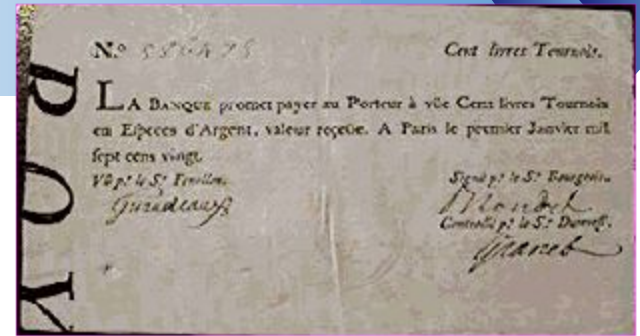 N.º Cent livres Tournois.
LA BANQUE promet payer au Porteur à vûe Cent livres Tournois
en Especes d'Argent, valeur reçeûe. A Paris le premier Janvier mil
sept cens vingt.
Vû p.r le S.r Fenellon. Signé p.r le S.r Bourgeois.
Giraudeaux
Controllé p.r le S.r Durevest.
Granet
R O Y